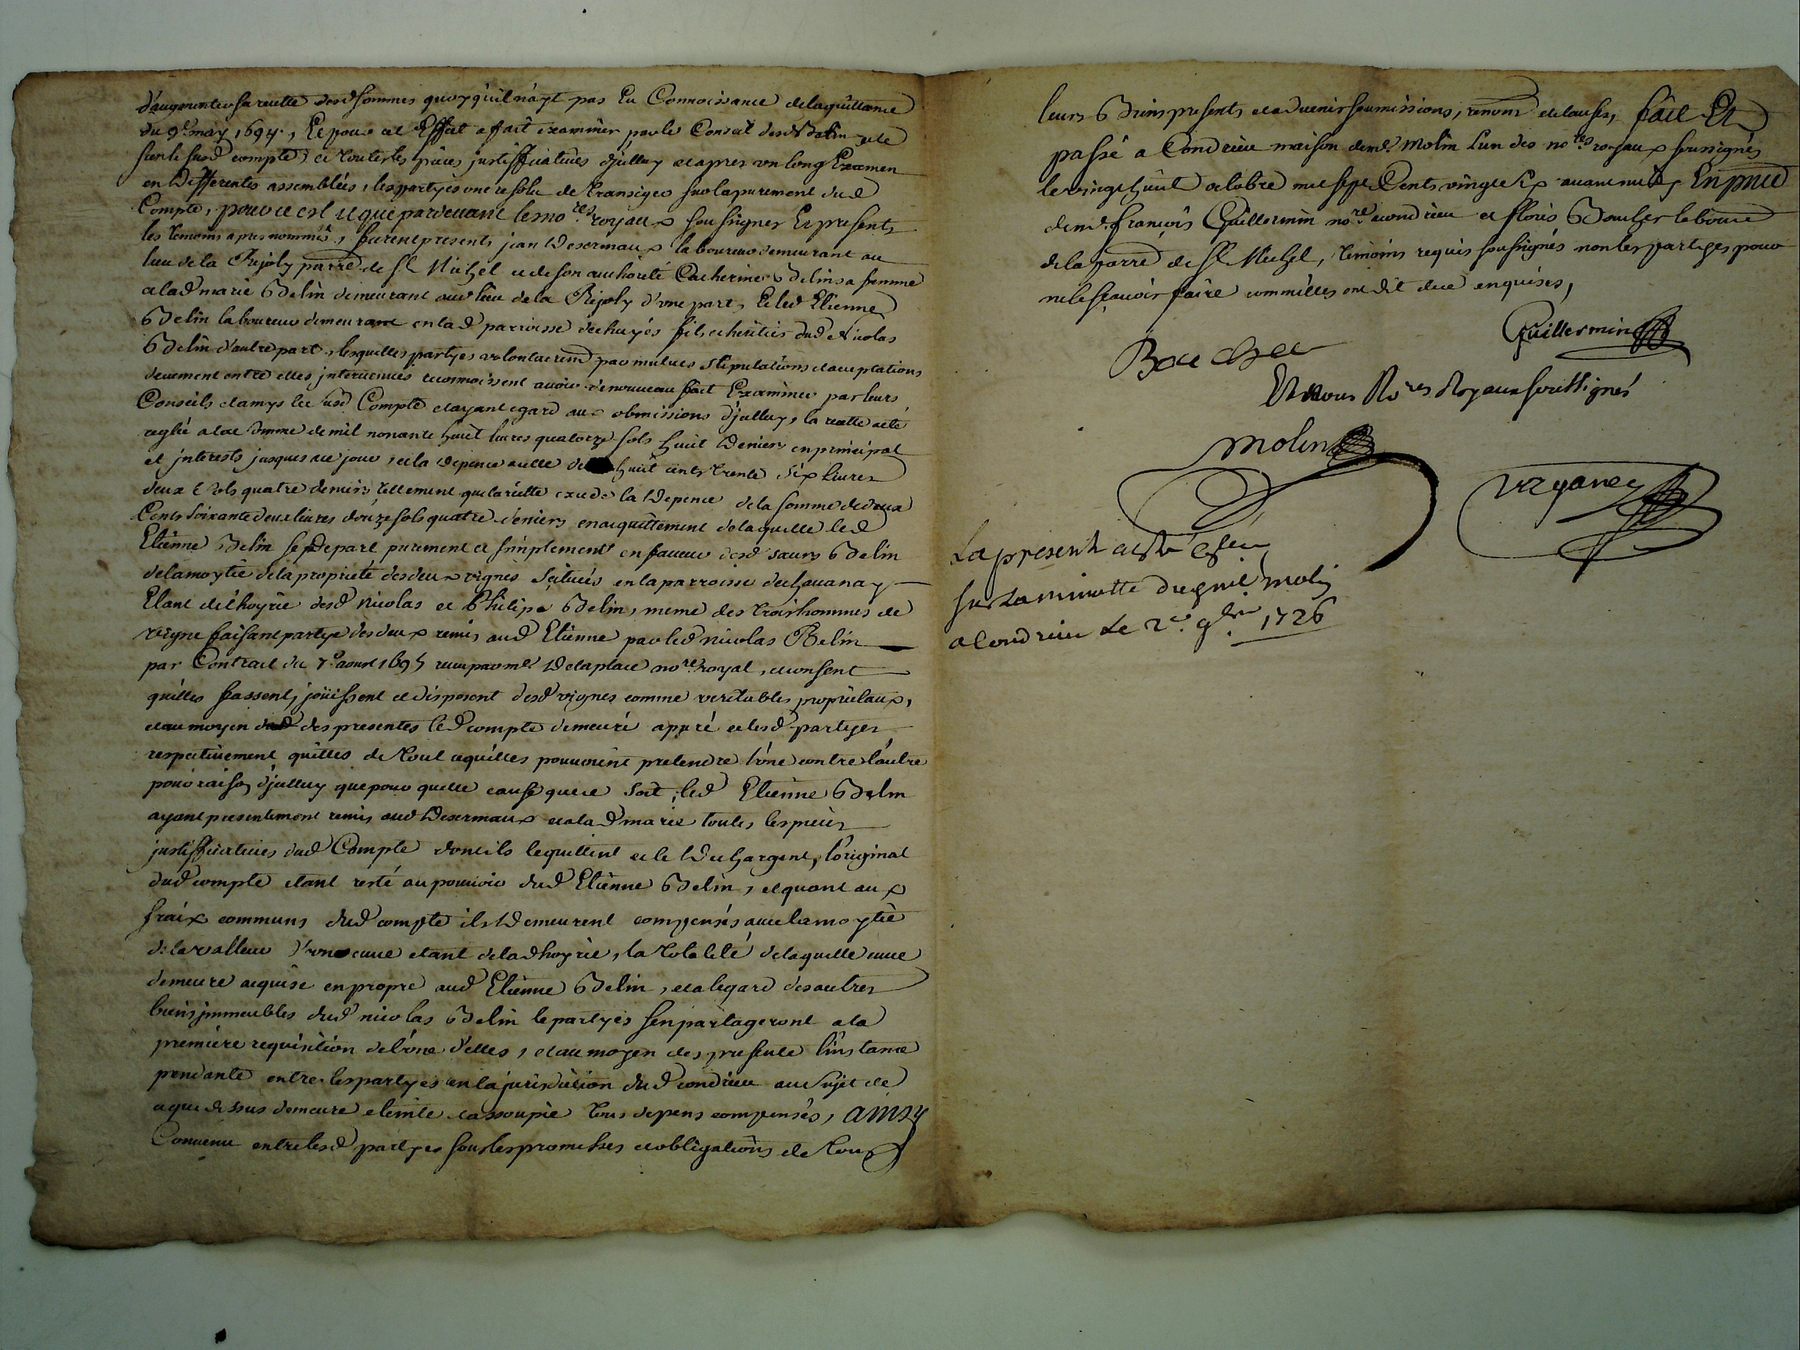 d'augmenter sa recette desd sommes quoyqu'il n'ayt pas Eu Connoissance de la quittance
du 9e may 1694, Et pour cet Effet a fait examiner par le Conseil desd Belin et le
sien le susd compte, et toutes les pièces justifficatives d'jcelluy et apres un long Examen
en Differentes assemblées, les partyes ont resolu de transiger sur lapurement dud
Compte, pour ce est il que pardevant les nores royaux soussignes Et presents
les temoins apres nommés, furent presents jean Desermaux laboureur demeurant au
lieu de la Rejoly parre de St Michel et de son authorité Catherine Belin sa femme
et lad marie Belin demeurant aud lieu de la Rejoly d'une part, Et led Etienne
Belin laboureur demeurant en lad parroisse de chuyés fils et heritier dud Nicolas
Belin d'autre part, lesquelles partyes volontairemt par mutues stipulations et acceptations
deuement entre elles intervenues reconnoissent avoir de nouveau fait Examiner par leurs
Conseils et amys le susd Compte et ayant egard aux obmissions d'jcelluy, la recette a eté
reglée a la somme de mil nonante huit livres quatorze sols huit Deniers en principal
et jnterests jusques a ce jour, et la depence a celle de huit cents trente six Livres
deux sols quatre deniers tellement que la recette excede la Depence de la somme de deux
Cents soixante deux livres douze sols quatre deniers en acquittement de laquelle led
Etienne Belin se Depart purement et simplement en faveur desd sœurs Belin
de la moytié de la proprieté des deux vignes scituées en la parroisse de chavanay
Etant de l'hoyrie desd Nicolas et Philipe Belin, meme des trois hommes de
vigne faisant partye des deux remis aud Etienne par led nicolas Belin
par Contract du 7e aoust 1695 receu par me Delaplace nore royal, et consent
qu'elles fassent, jouissent et disposent desd vignes comme veritables proprietaux,
et au moyen des presentes led compte demeure appuré et lesd partyes
respectivement quittes de tout ce qu'elles pouvoient pretendre l'une contre l'autre
pour raison d'jcelluy que pour quelle cause que ce soit, led Etienne Belin
ayant presentement remis aud Desermaux et a lad marie toutes les pieces
justifficatives dud Compte dont ils le quittent et le Dechargent, l'original
dud compte etant resté au pouvoir dud Etienne Belin, et quant aux
fraix communs dud compte ils Demeurent compensés avec la moytié
de la valleur d'une cuve etant de lad hoyrie, la totalité de laquelle cuve
demeure acquise en propre aud Etienne Belin, et a l'egard des autres
biens jmmeubles dud nicolas Belin le partyes s'en partageront a la
premiere requisition de l'une d'elles, et au moyen des presente l'instance
pendante entre les partyes en la jurisdiction dud condrieu au sujet de
ce que dessus demeure eteinte et assoupie tous depens compensés, ainsy
Convenu entre lesd partyes sous les promesses et obligations de tous
leurs Biens presents et advenir soumissions, renons et clauses, fait Et
passé a Condrieu maison dud me Molin L'un des nores royaux soussignés
le vingt huit octobre mil sept Cents vingt six avant midy En pnce
de me François Guillermin nore a condrieu et floris Boucher laboureur
de la parre de St Michel, temoins requis soussignés non les partyes pour
ne le sçavoir faire comm'elles ont dit de ce enquises,
Boucher
Guillermin
Et Nous Nores Royaux soussignés
Molin
La present acte
sur la minutte Molin
a Condrieu Le 2e 9bre 1726